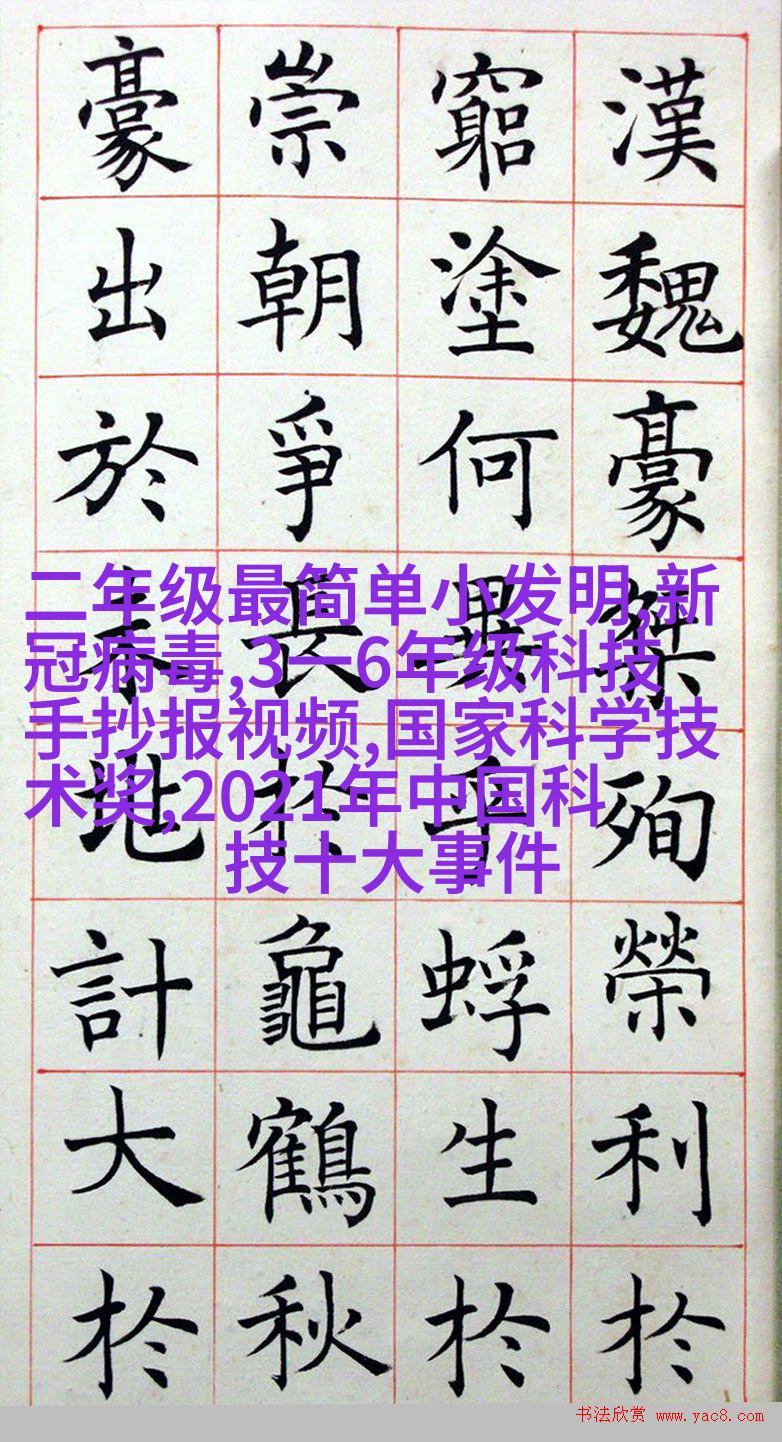 漢魏豪桀殉榮利扵
窮塗何異乎蜉生扵
崇朝爭長扵龜鶴秋
豪出於地計大扵
二年级最简单小发明,新
冠病毒,3一6年级科技
手抄报视频,国家科学技
术奖,2021年中国科
技十大事件
书法欣赏 www.yac8.com